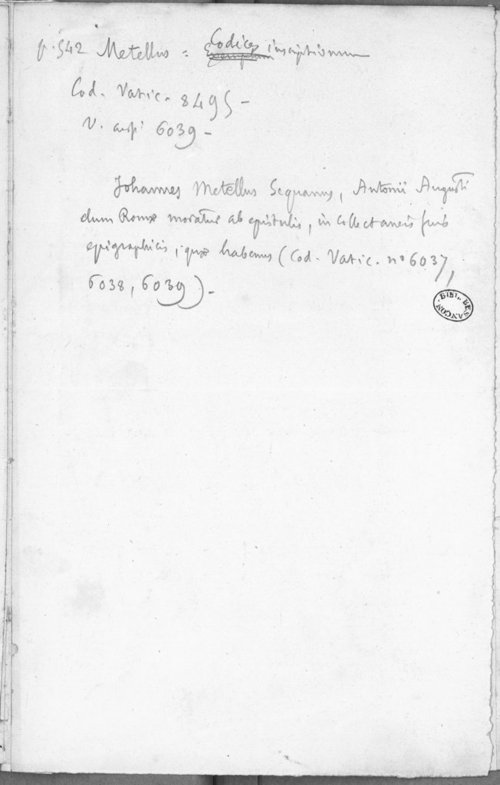 p. 542 Metellus = Codices inscriptionum
Cod. Vatic. 8495 –
V. aussi 6039 –
Johannes Metellus Sequanus, Antonii Augusti
dum Romæ moratur ab epistulis, in collectaneis suis
epigraphicis, quæ habemus (Cod. Vatic. nº 6037,
6038, 6039). –
BIBL. BESANÇON